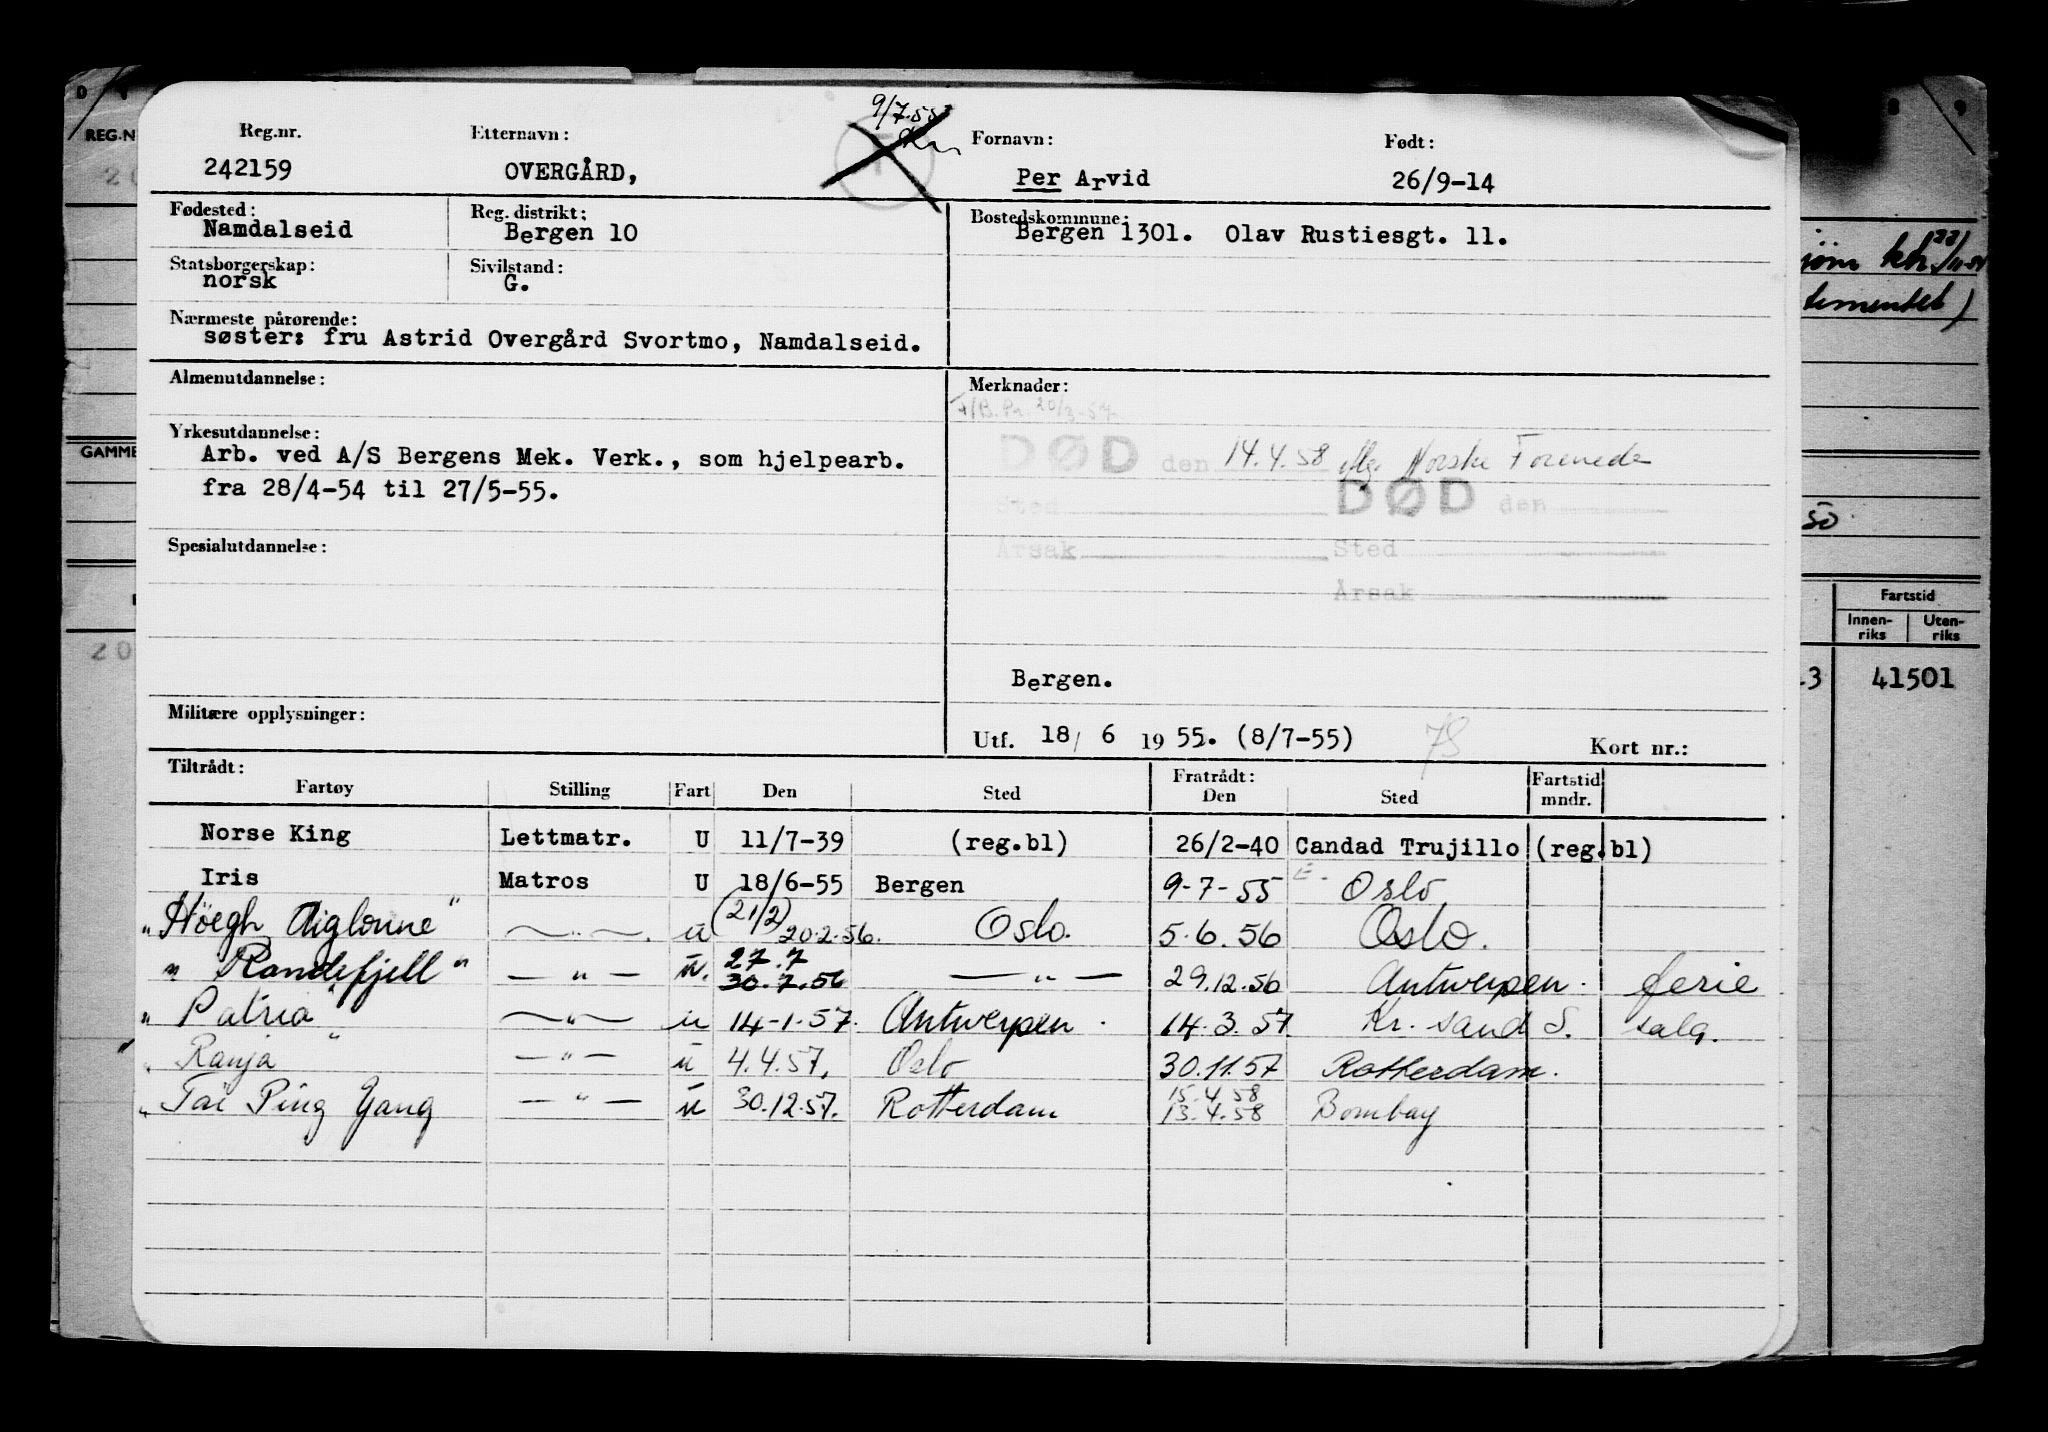 9/7-55
Reg.nr. Etternavn: Fornavn: Født:
242159 OVERGÅRD, Per Arvid 26/9-14
Fødested: Reg. distrikt: Bostedskommune:
Namdalseid Bergen 10 Bergen 1301. Olav Rustiesgt. 11.
Statsborgerskap: Sivilstand:
norsk G.
Nærmeste pårørende:
søster: fru Astrid Overgård Svortmo, Namdalseid.
Almenutdannelse: Merknader:
20/3-57
Yrkesutdannelse:
Arb. ved A/S Bergens Mek. Verk., som hjelpearb.
fra 28/4-54 til 27/5-55.
DØD den 14.4.58 iflg. Norske Forenede
Sted
Årsak
DØD den
Sted
Årsak
Spesialutdannelse:
Bergen.
Militære opplysninger:
Utf. 18/ 6 1955. (8/7-55) 78 Kort nr.:
Tiltrådt: Fratrådt: Fartstid
Fartøy Stilling Fart Den Sted Den Sted mndr.
Norse King Lettmatr. U 11/7-39 (reg.bl) 26/2-40 Candad Trujillo (reg.bl)
Iris Matros U 18/6-55 Bergen 9-7-55 Oslo
"Höegh Aiglonne" —"— u (21/2) 20.2.56. Oslo. 5.6.56 Oslo.
"Randsfjell" —"— u. 27.7 30.7.56 —"— 29.12.56 Antwerpen. ferie
"Patria" —"— u 14-1-57. Antwerpen. 14.3.57. Kr.sand S. salg.
"Ranja —"— u 4.4.57. Oslo 30.11.57 Rotterdam.
"Tai Ping Yang —"— u 30.12.57. Rotterdam 15.4.58 13.4.58 Bombay
REG.N
GAMME
20
8 9
50
Fartstid
Innen-riks Uten-riks
3 41501